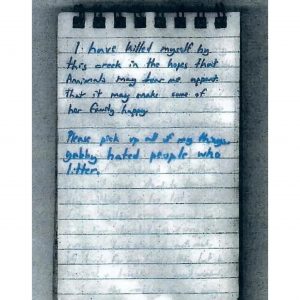 I have killed myself by
this creek in the hopes that
Animals may tear me appart
that it may make some of
her family happy
Please pick up all of my things
gabby hated people who
litter.